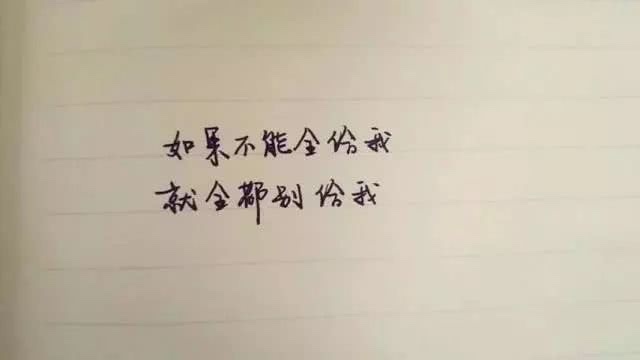 如果不能全给我
就全都别给我